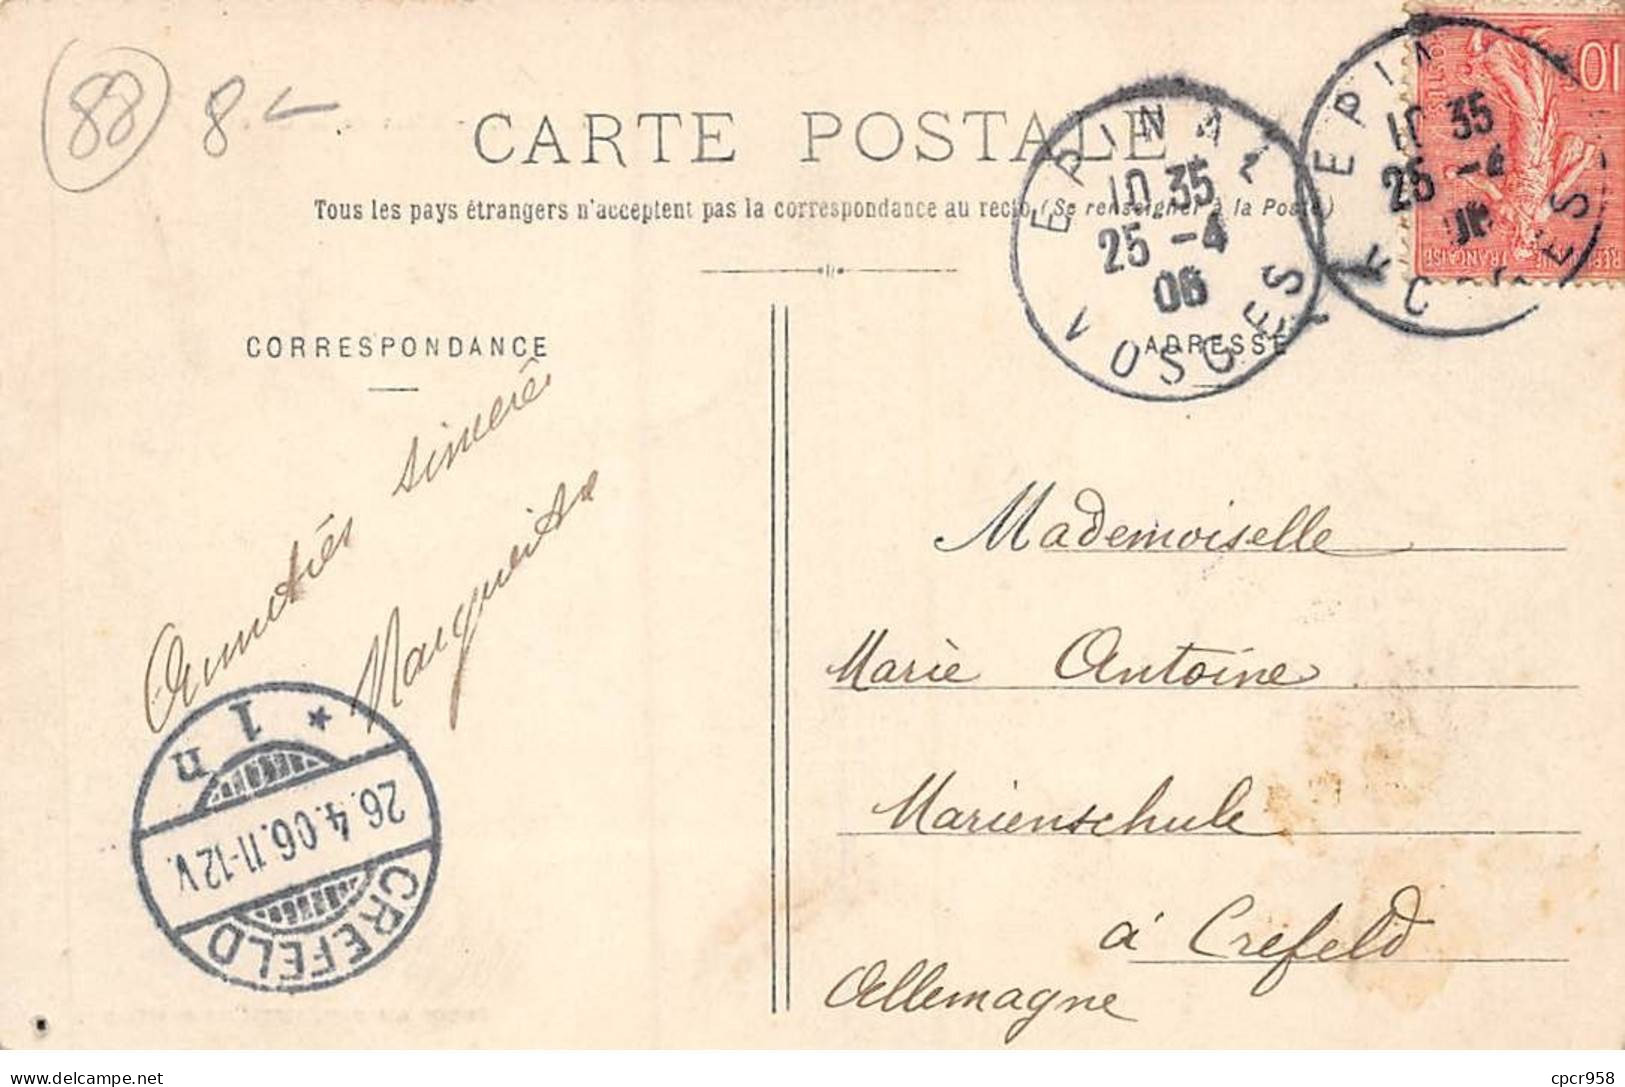 88 8
CARTE POSTALE
Tous les pays étrangers n'acceptent pas la correspondance au recto (Se renseigner à la Poste)
EPINAL
10 35
25 -4
06
VOSGES
EPINAL
10 35
25 -4
06
VOSGES
10
POSTES
REPUBLIQUE FRANÇAISE
CORRESPONDANCE
ADRESSE
Amitiés sincères
Marguerite
Mademoiselle
Marie Antoine
Marienschule
à Crefeld
Allemagne
CREFELD
26.4.06.11-12V.
* 1 n
delcampe.net
cpcr958